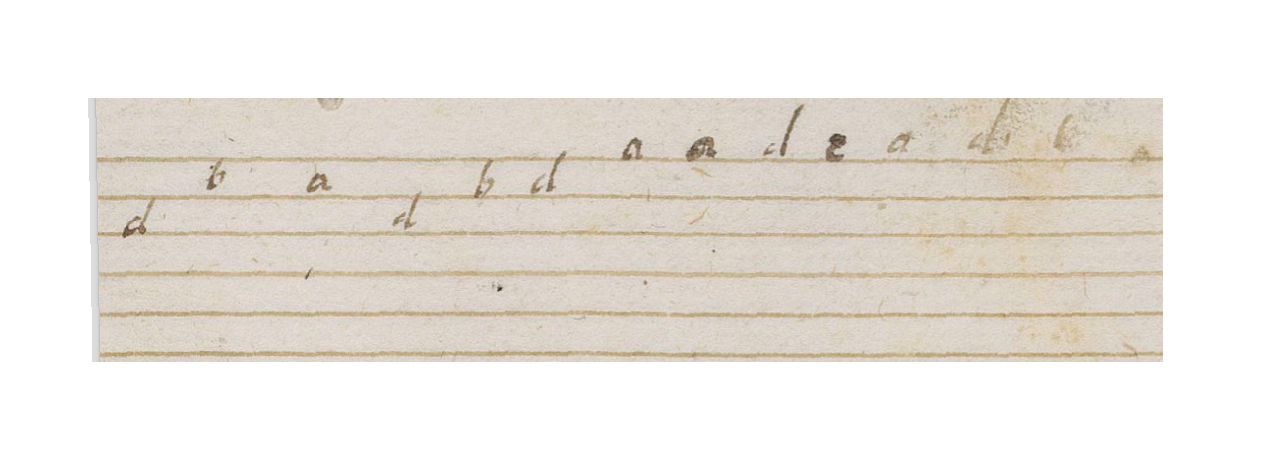 d b a d b d a a d e a d b a